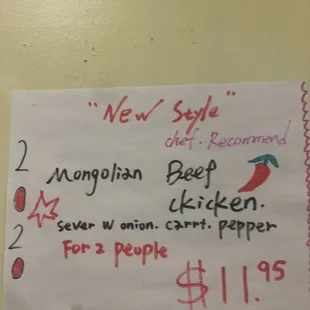 "New Style"
chef. Recommend
2
Mongolian Beef
ckicken.
2
Sever W onion. carrt. pepper
For 2 people
$11.95